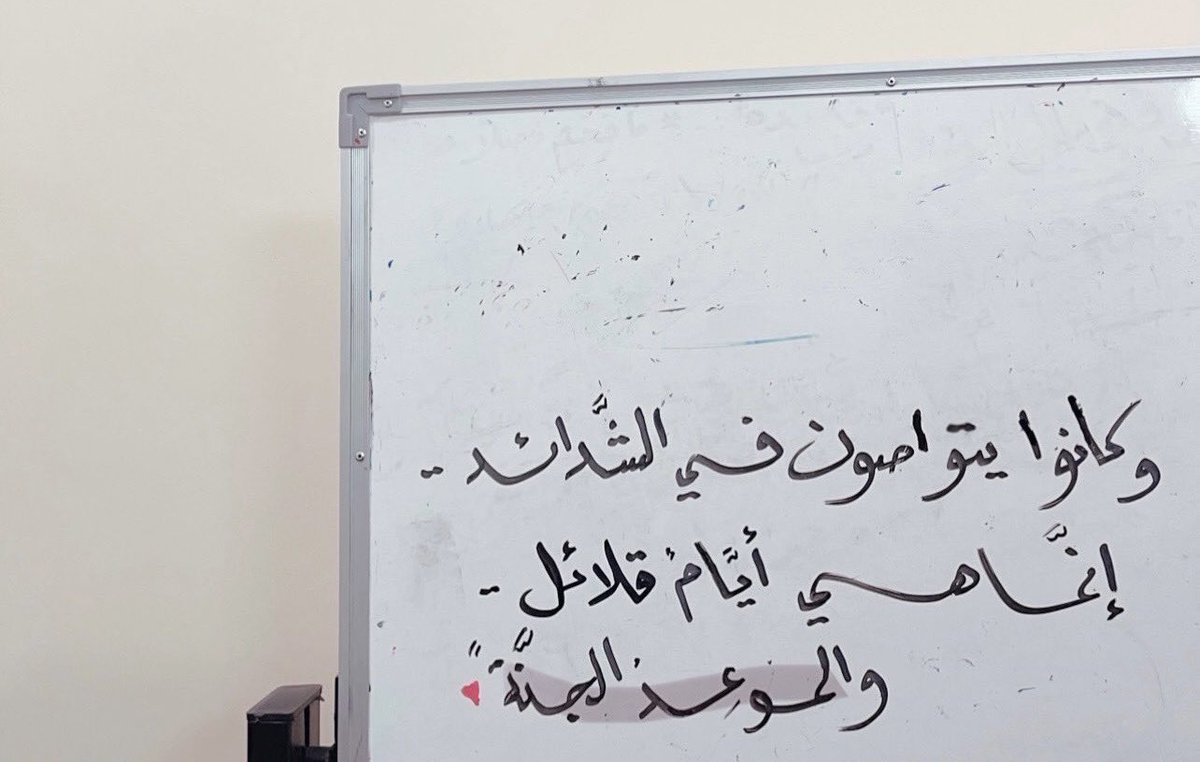 وكانوا يتواصون في الشَّدائد..
إنَّما هي أيَّامٌ قلائل..
والموعِدُ الجنَّة"